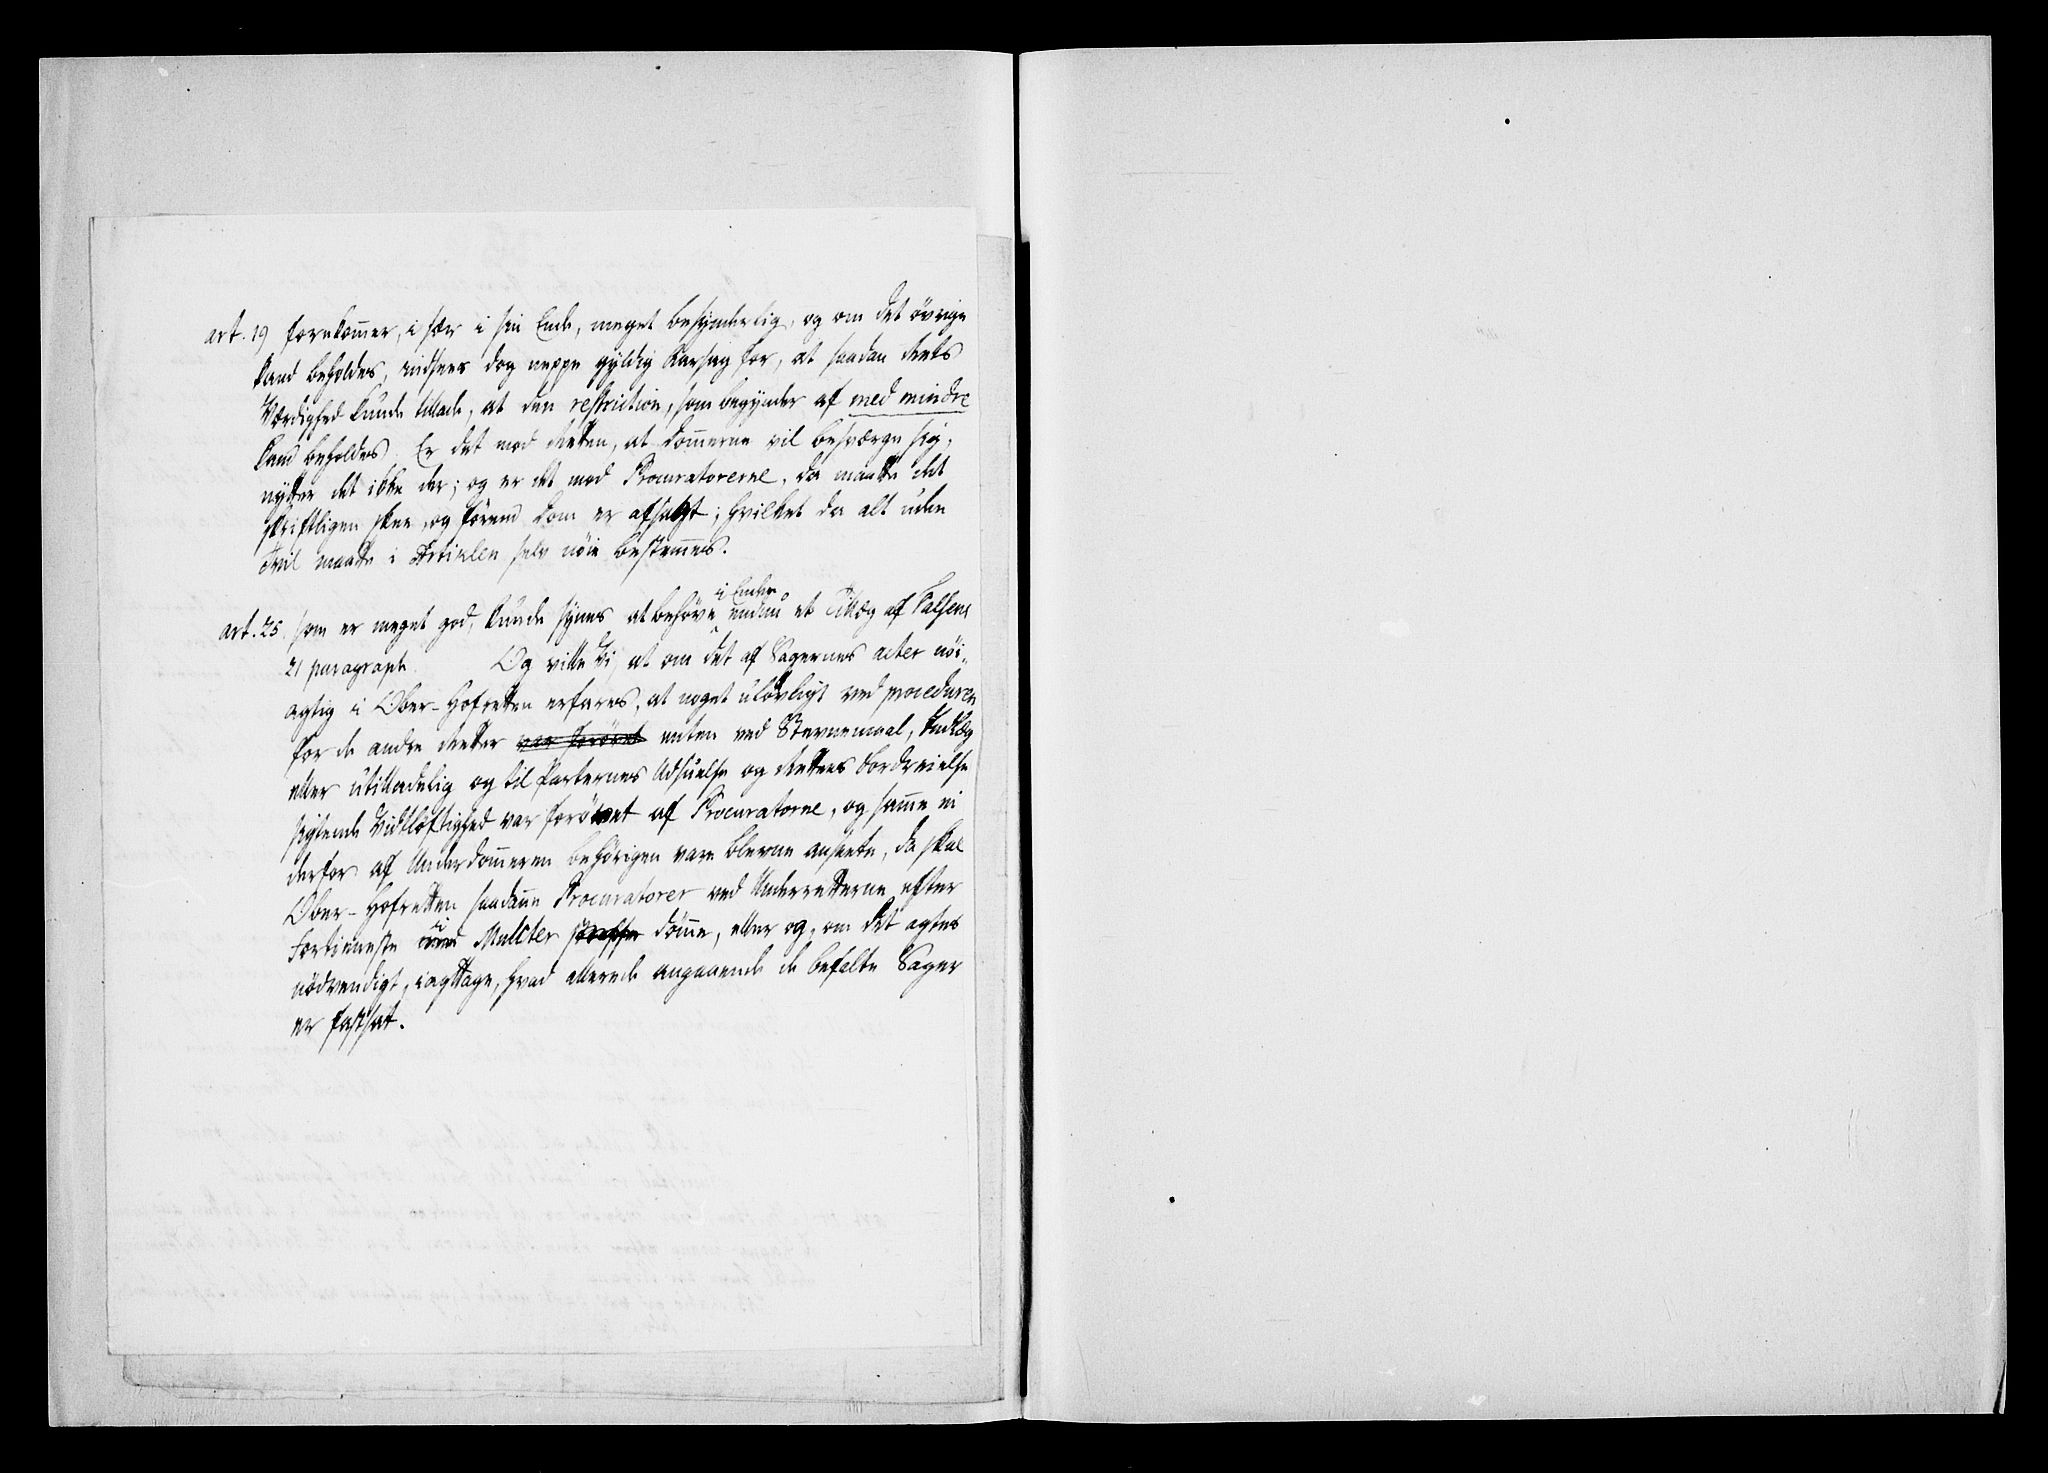 art. 19 forekom̅er, i sær i sin Ende, meget besynderlig, og om det övrige
kand beholdes, indsees dog neppe gyldig Aarsag for, at saadan Rets
Værdighed kunde tillade, at den restriction, som begynder af med mindre
kand beholdes. Er det mod Retten, at Dom̅erne vil besværge sig,
nytter det ikke der; og er det mod Procuratorerne, da maatte det
skriftligen skee, og förend Dom er afsagt; hvilket da alt uden
Tvil maatte i Artiklen selv nöie bestem̅es.
i Enden
art. 25. som er meget god, kunde synes at behöve endnu et Tillæg af Falsens
21 paragraph. Og ville Vi, at om det af Sagernes acter nöi-
agtig i Ober-Hofretten erfares, at noget ulovligt ved proceduren
for de andre Retter var forövet enten ved Stevnemaal, Indlæg
eller utilladelig og til Parternes Udsuelse og Rettens Fordreielse
sigtende Vidtlöftighed var forövet af Procuratorne, og sam̅e ei
derfor af Underdom̅eren behörigen vare blevne ansete, da skal
Ober-Hofretten saadanne Procuratorer ved Underretterne efter
i
Fortieneste med Mulcter straffe döm̅e, eller og, om det agtes
nödvendigt, iagttage, hvad allerede angaaende de befalte Sager
er fastsat.